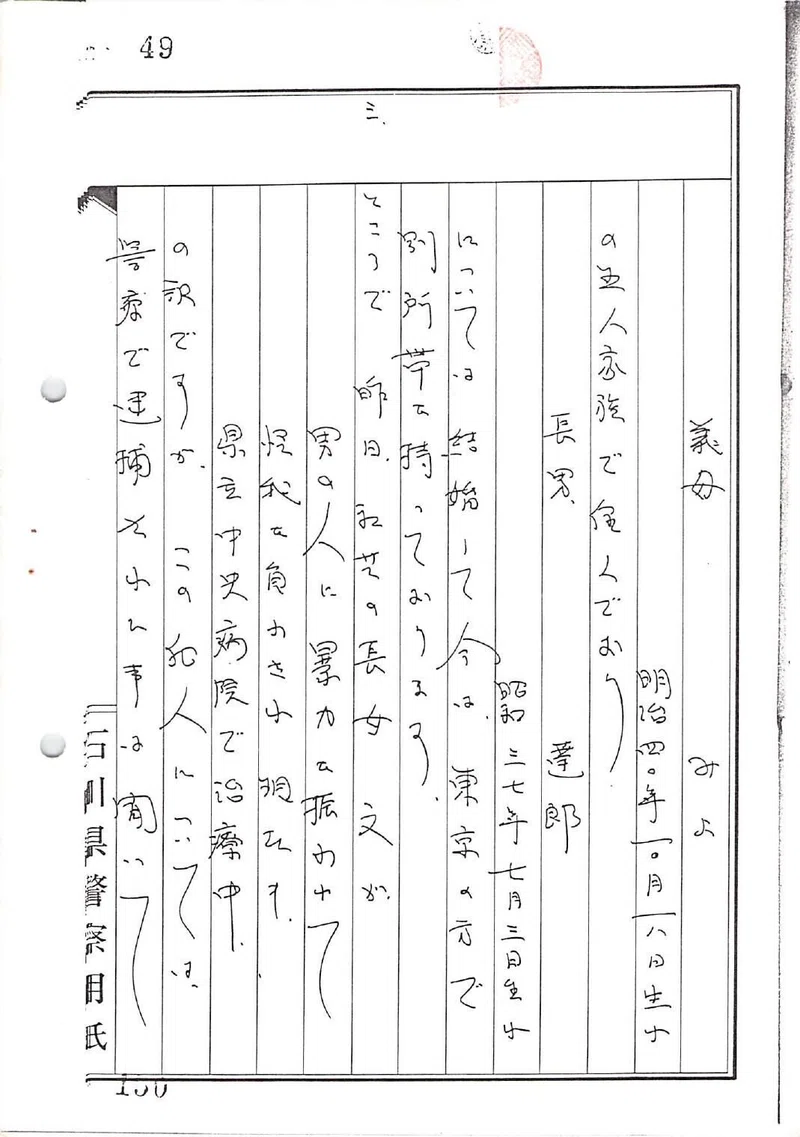 49
三、
義母 みよ
明治四〇年一〇月一八日生れ
の五人家族で住んでおり
長男 達郎
昭和三七年七月三日生れ
については結婚して今は、東京の方で
別所帯を持っております。
ところで 昨日、私共の長女 文が、
男の人に暴力を振われて
怪我を負わされ 現在も、
県立中央病院で治療中、
の訳ですが、この犯人については、
警察で逮捕された事は聞いて
石川県警察用
150